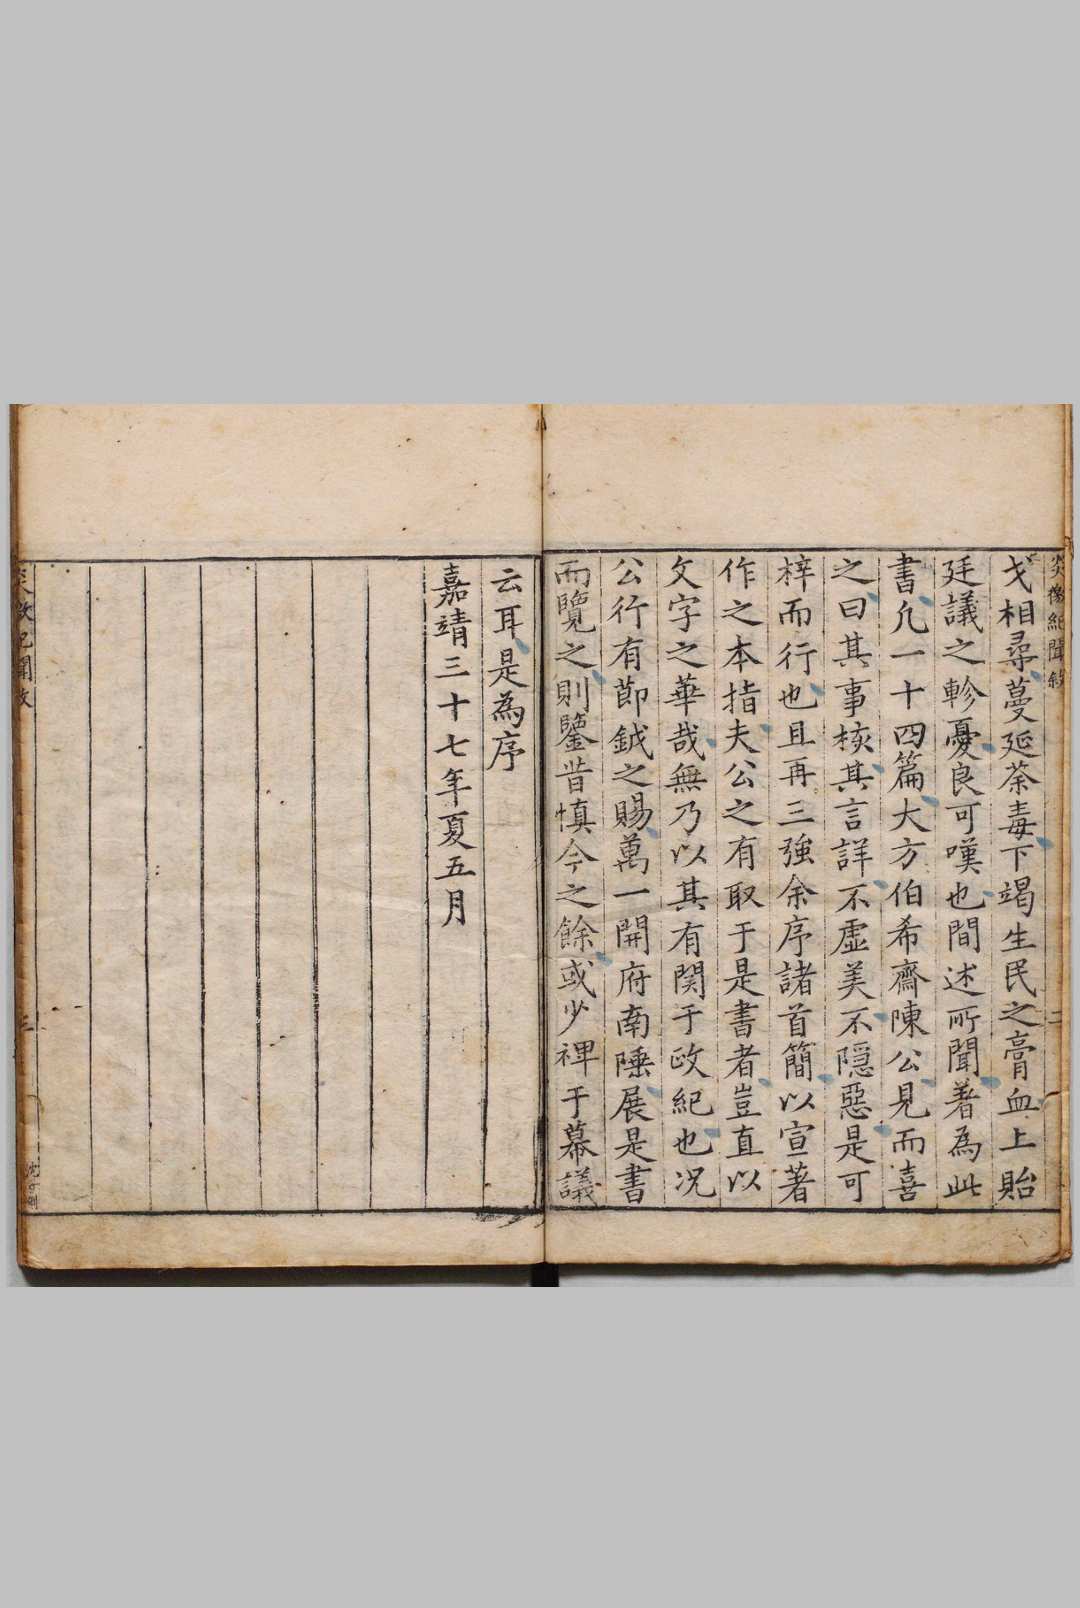 炎徼紀聞敘
二
戈相尋蔓延荼毒下竭生民之膏血上貽
廷議之軫憂良可嘆也間述所聞著為此
書凡一十四篇大方伯希齋陳公見而喜
之曰其事核其言詳不虛美不隱惡是可
梓而行也且再三強余序諸首簡以宣著
作之本指夫公之有取于是書者豈直以
文字之華哉無乃以其有関于政紀也况
公行有節鉞之賜萬一開府南陲展是書
而覽之則鑒昔慎今之餘或少裨于幕議
云耳是為序
嘉靖三十七年夏五月